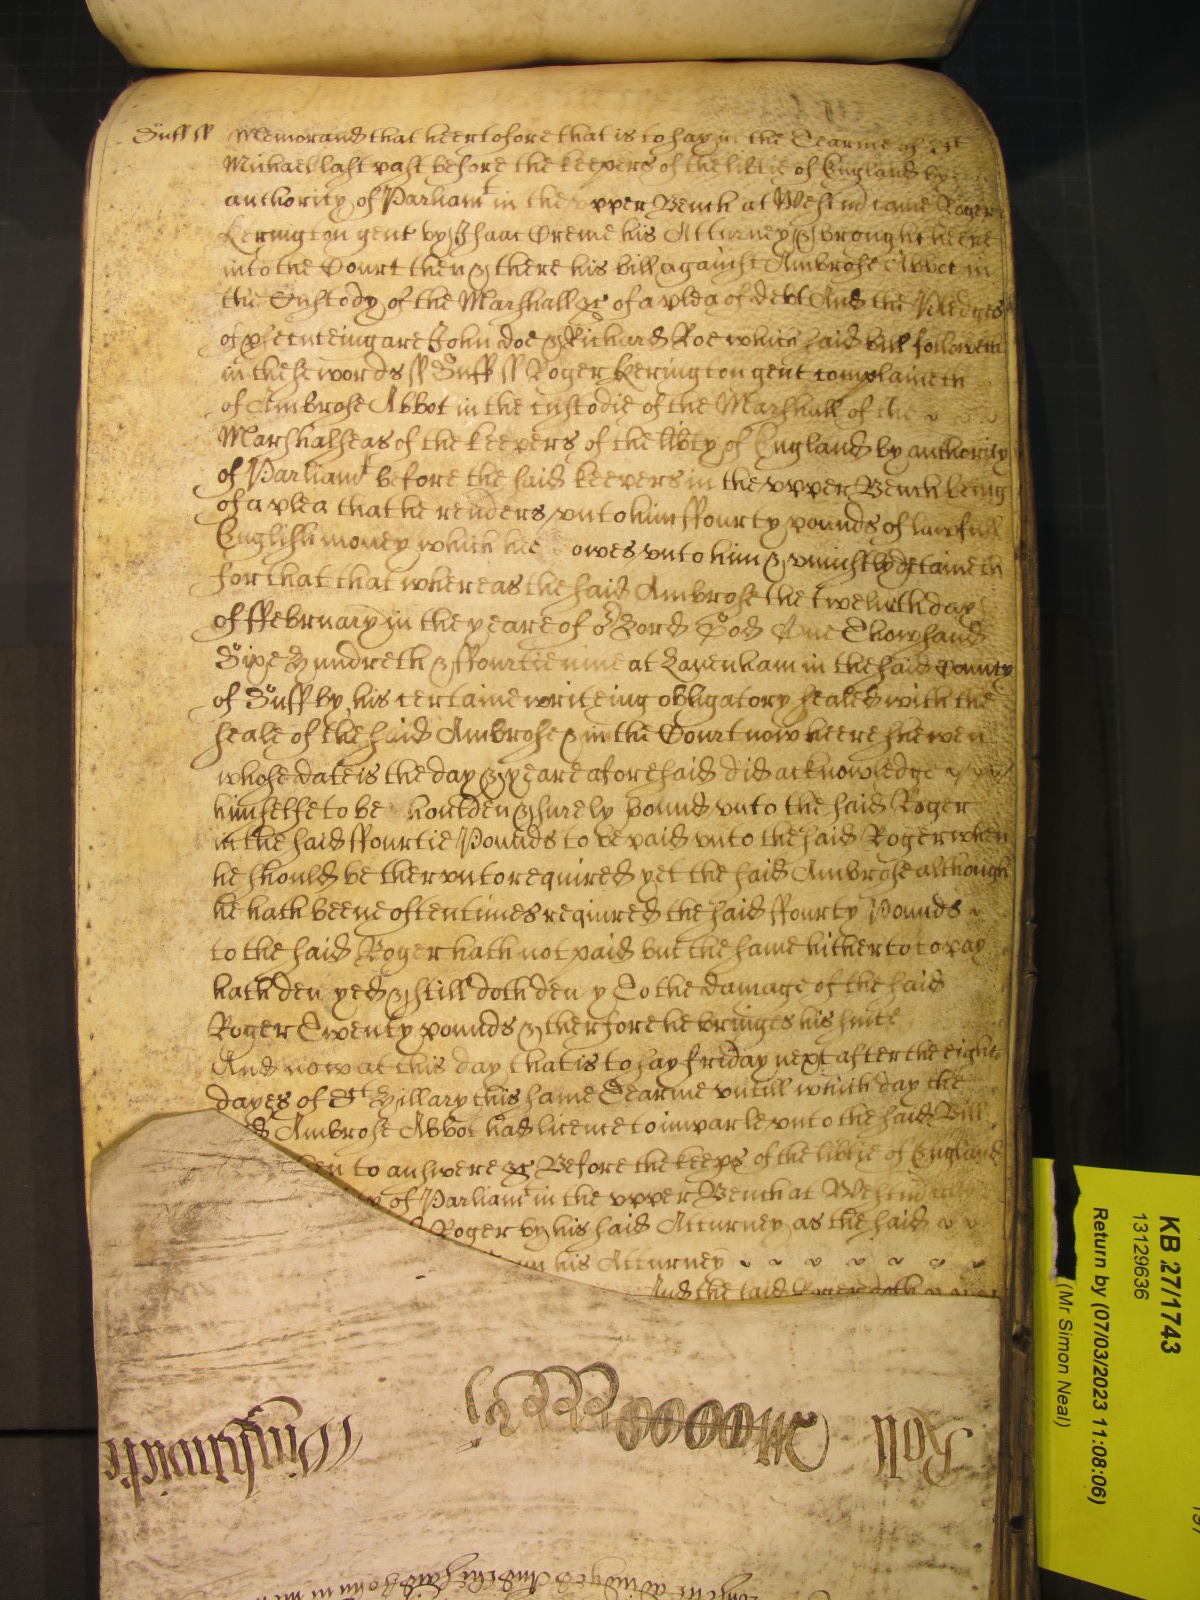 Suff ss Memorand that heertofore that is to say in the Tearme of St
Michaell last past before the keepers of the libtie of England by
authority of Parliamt in the vpper Bench at Westm came Roger
Kerington gent by Isaac Creme his Atturney & brought heere
into the Court then & there his bill against Ambrose Abbot in
the Custody of the Marshall &c of a plea of debt And the Pledges
of psecuteing are John Doe & Richard Roe which said bill followeth
in these words ss Suff ss Roger Kerington gent complaineth
of Ambrose Abbot in the custodie of the Marshall of the
Marshalseas of the keepers of the libty of England by authority
of Parliamt before the said keepers in the vpper Bench being
of a plea that he renders vnto him ffourty pounds of lawfull
English money which hee owes vnto him & vniustly detaineth
for that that whereas the said Ambrose the twelveth day
of ffebruary in the yeare of or Lord God One Thowsand
Sixe Hundreth & ffourtie nine at Lavenham in the said County
of Suff by his certaine writeing obligatory sealed with the
seale of the said Ambrose & in the Court now heere shewen
whose date is the day & yeare aforesaid did acknowledge
himselfe to be houlden & surely bound vnto the said Roger
in the said ffourtie Pounds to be paid vnto the said Roger when
he should be thervnto required yet the said Ambrose although
he hath beene oftentimes required the said ffourty Pounds
to the said Roger hath not paid but the same hitherto to pay
hath denyed & still doth deny To the damage of the said
Roger Twenty pounds & therfore he bringes his suite
And now at this day that is to say friday next after the eight
dayes of St Hillary this same Tearme vntill which day the
d Ambrose Abbot had licence to imparle vnto the said Bill
hen to answere &c Before the keeps of the libtie of England
ty of Parliamt in the vpper Bench at Westm
Roger by his said Atturney as the said
his Atturney
And the said Roger doth
Roll
KB 27/1743
13129636
Return by (07/03/2023 11:08:06)
(Mr Simon Neal)